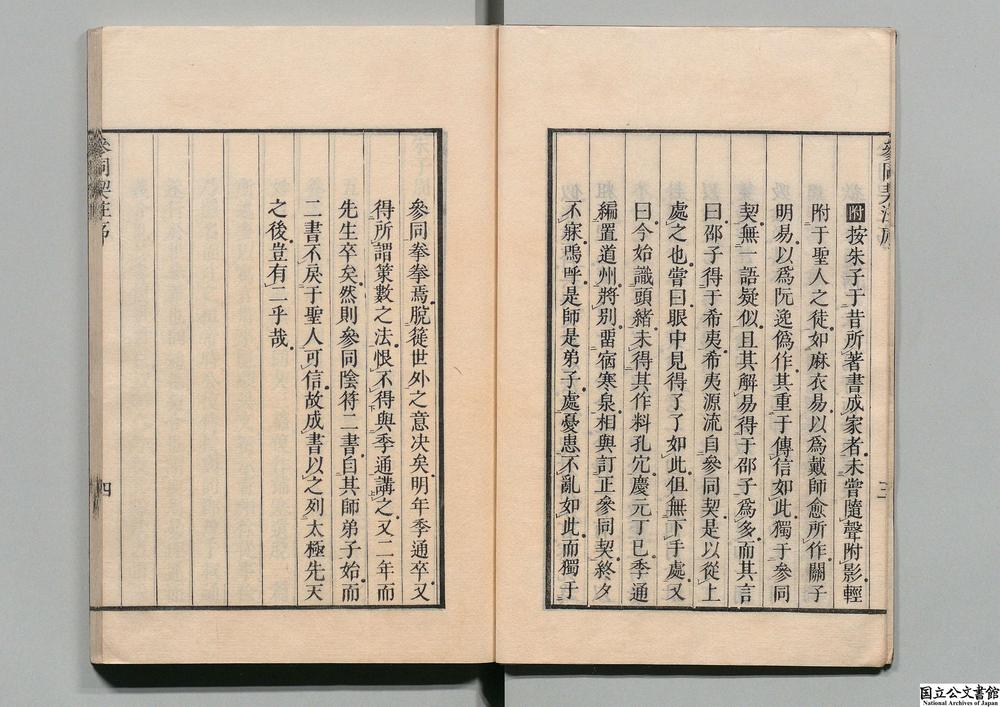 參同契注序
附按朱子于昔所著書成家者未嘗隨聲附影輕
附于聖人之徒如麻衣易以爲戴師愈所作關子
明易以爲阮逸僞作其重于傳信如此獨于參同
契無一語疑似且其解易得于邵子爲多而其言
曰邵子得于希夷希夷源流自參同契是以從上
處之也嘗曰眼中見得了了如此但無下手處又
曰今始識頭緒未得其作料孔穴慶元丁巳季通
編置道州將別畱宿寒泉相與訂正參同契終夕
不寐嗚呼是師是弟子處憂患不亂如此而獨于
三
參同拳拳焉脫蓰世外之意决矣明年季通卒又
得所謂策數之法恨不得與季通講之又二年而
先生卒矣然則參同陰符二書自其師弟子始而
二書不戾于聖人可信故成書以之列太極先天
之後豈有二乎哉
參同契注序
四
国立公文書館
National Archives of Japan